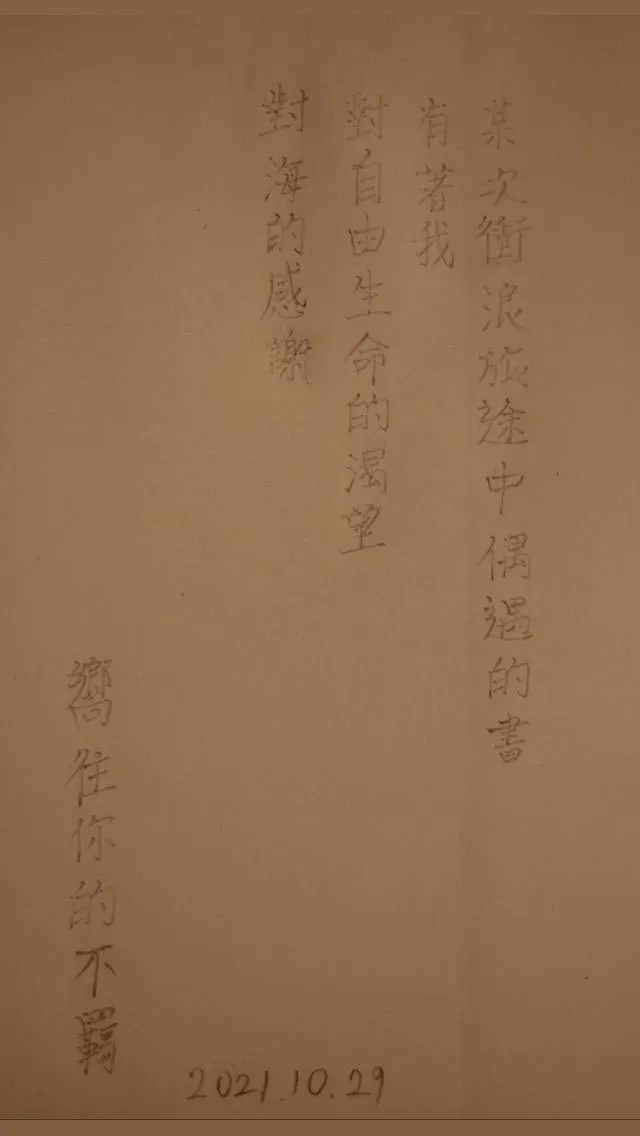 某次衝浪旅途中偶遇的書
有著我
對自由生命的渴望
對海的感謝
嚮往你的不羈
2021.10.29